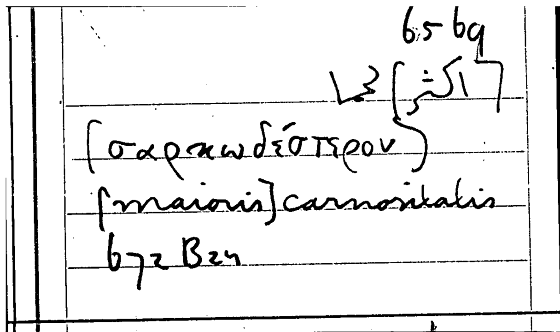 65 b9
[اكثر] لحما
(σαρκωδέστερον)
[maioris] carnositatis
672 B24